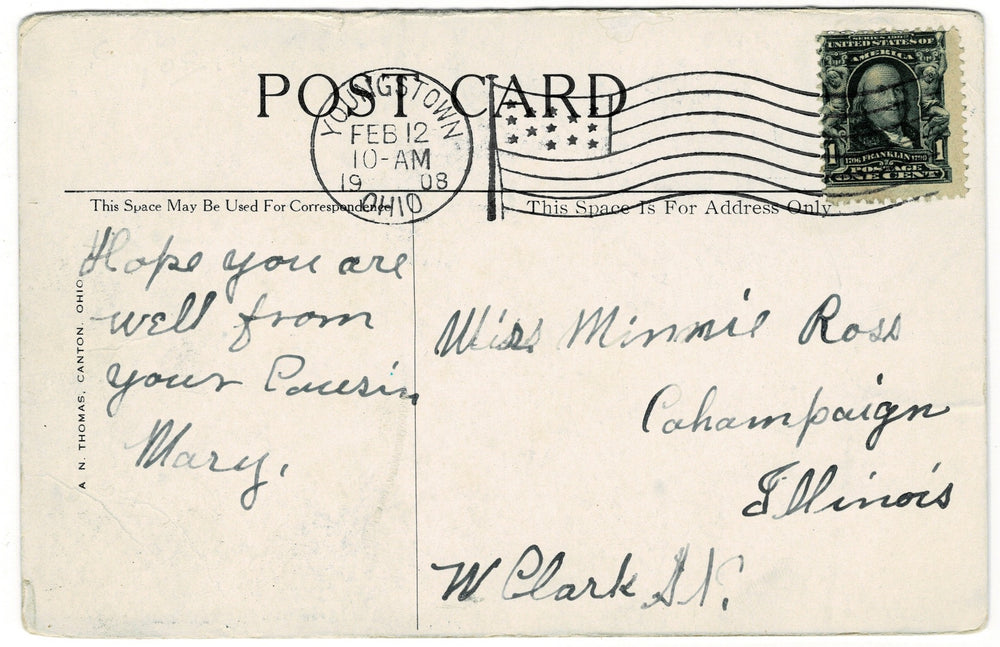 POST CARD
YOUNGSTOWN
FEB 12
10-AM
19 08
OHIO
SERIES 1902
UNITED STATES OF
AMERICA
1 1
1706 FRANKLIN 1790
POSTAGE
ONE CENT
This Space May Be Used For Correspondence
This Space Is For Address Only
A. N. THOMAS, CANTON. OHIO
Hope you are
well from
your Cousin
Mary.
Miss Minnie Ross
Cahampaign
Illinois
W Clark St.